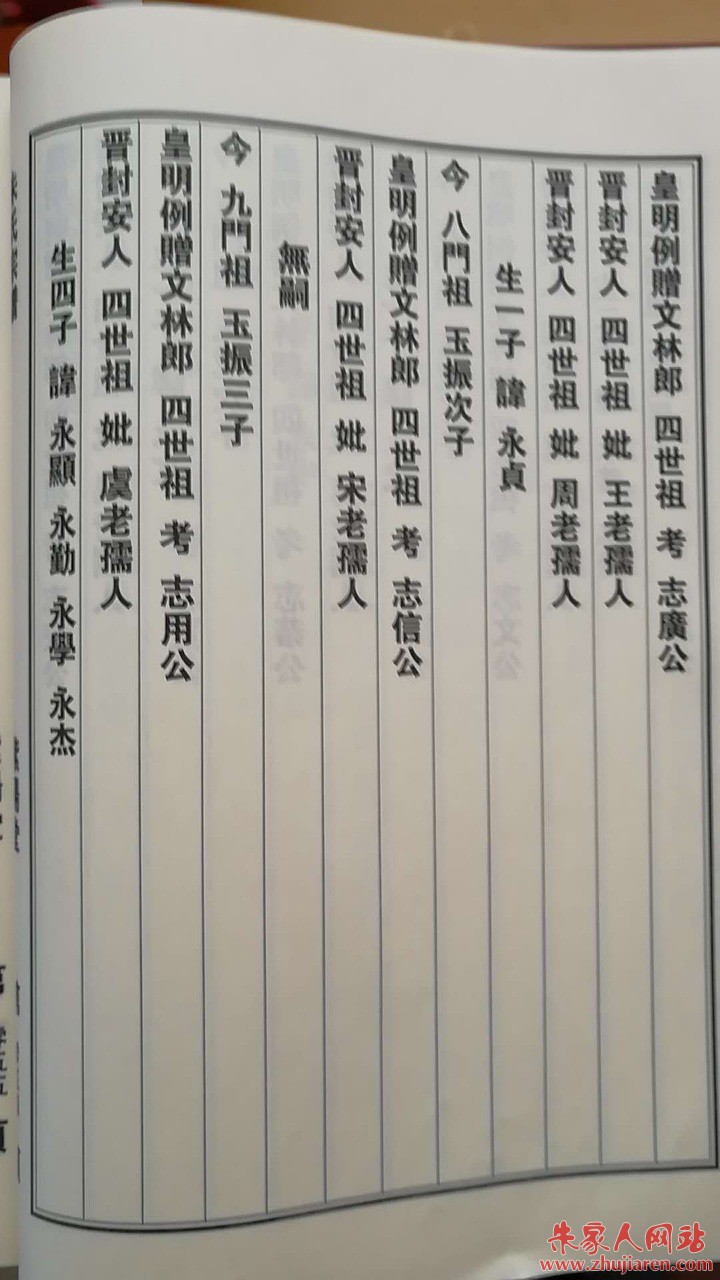 皇明例贈文林郎 四世祖 考 志廣公
晋封安人 四世祖 妣 王老孺人
晋封安人 四世祖 妣 周老孺人
生一子 諱 永貞
今 八門祖 玉振次子
皇明例贈文林郎 四世祖 考 志信公
晋封安人 四世祖 妣 宋老孺人
無嗣
今 九門祖 玉振三子
皇明例贈文林郎 四世祖 考 志用公
晋封安人 四世祖 妣 虞老孺人
生四子 諱 永顯 永勤 永學 永杰
朱家人网站
www.zhujiaren.com